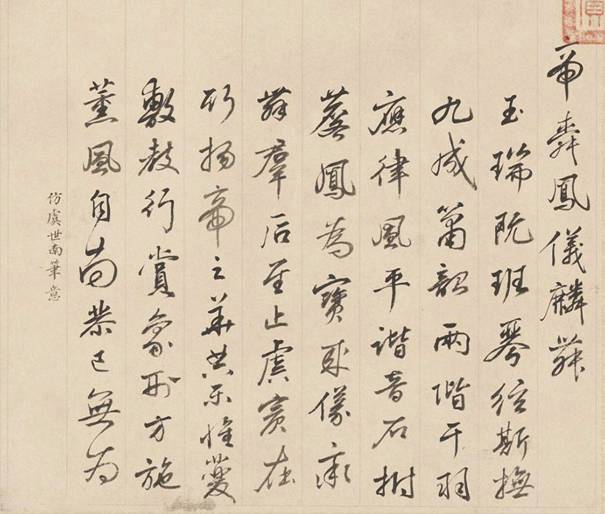 帝舜鳳儀麟舞
玉瑞既班琴絃斯撫
九成簫韶兩階干羽
應律風平諧音石拊
鳳為寶來儀率
舞羣后至止虞賓在
所揚帝之華典樂惟夔
敷教行賞象刑方施
薰風自南恭己無為
仿虞世南筆意